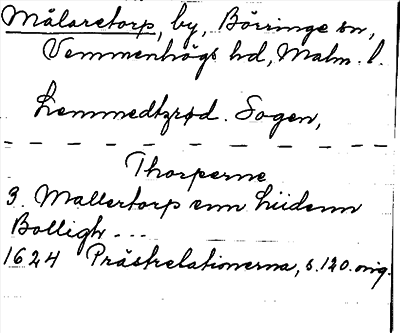 Målaretorp, by, Börringe sn,
Vemmenhögs hd, Malm. l.
Lemmedtzrød. Sogen,
Thorperne
9. Mallertorp enn Liidenn
Bolligh ---
1624 Prästrelationerna, s. 120. orig.